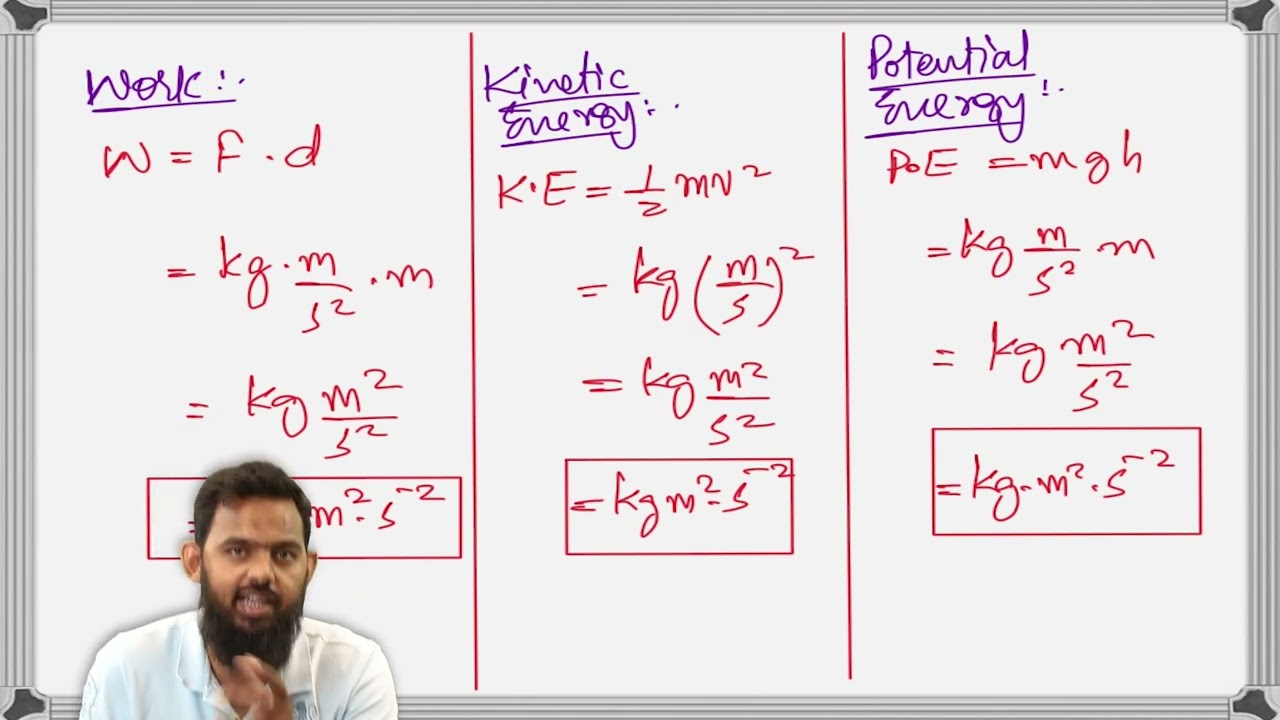 Work:.
W = F . d
= kg . m/s² . m
= kg m²/s²
= m² . s⁻²
Kinetic
Energy:.
K.E = 1/2 mv²
= kg (m/s)²
= kg m²/s²
= kg m² . s⁻²
Potential
Energy:.
P.E = mgh
= kg m/s² . m
= kg m²/s²
= kg . m² . s⁻²